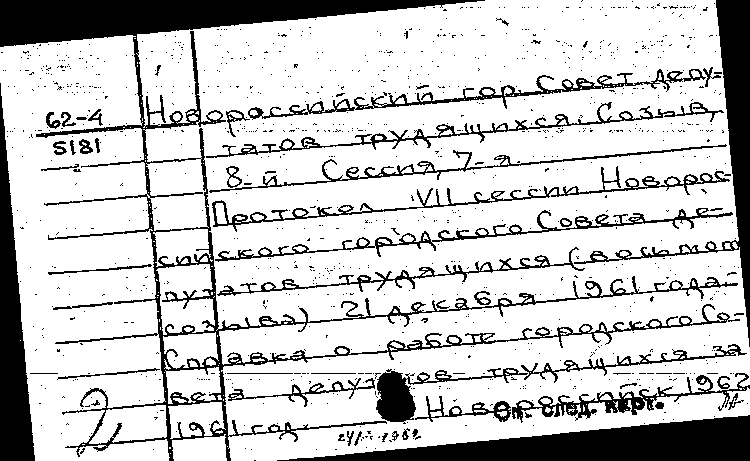 62-4
5181
Новороссийский гор. Совет депу-
татов трудящихся. Созыв,
8-й. Сессия, 7-я.
Протокол VII сессии Новорос-
сийского городского Совета де-
путатов трудящихся (восьмого
созыва) 21 декабря 1961 года.-
Справка о работе городского Со-
вета депутатов трудящихся за
1961 год. Новороссийск, 1962
См. след. карт.
2